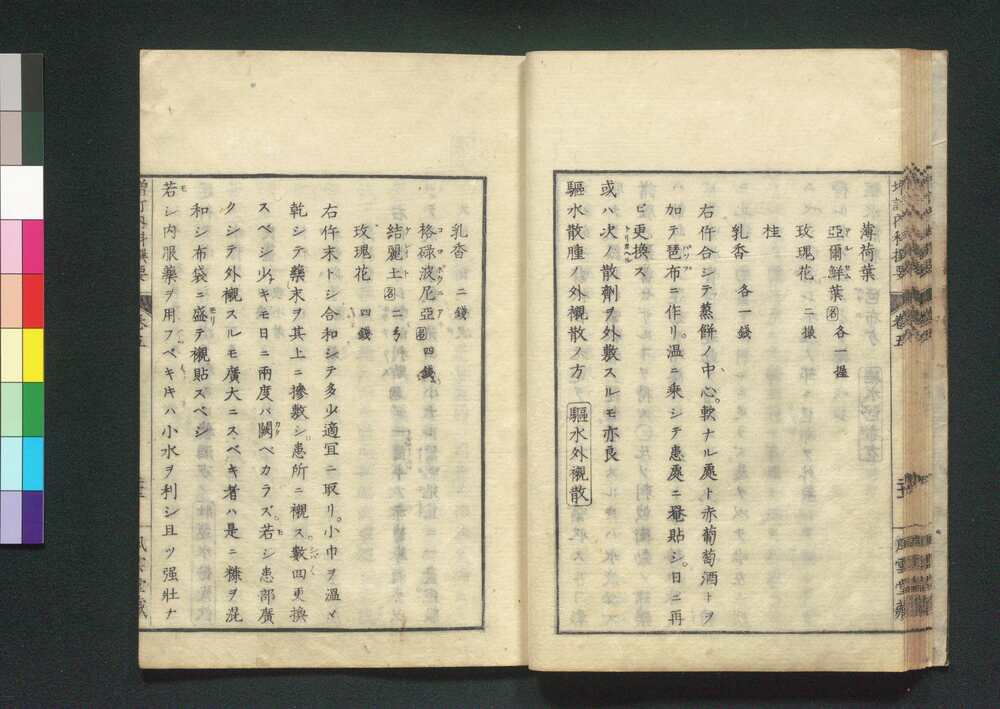 薄荷葉
亞爾鮮葉 各一握
玫瑰花 二撮
桂
乳香 各一錢
右件合シテ蒸餅ノ中心軟ナル處ト赤葡萄酒トヲ
加テ琶布ニ作リ。温ニ乗シテ患處ニ罨貼シ。日ニ再
ヒ更換ス
或ハ次ノ散劑ヲ外敷スルモ亦良
驅水散腫ノ外襯散ノ方 驅水外襯散
乳香 二錢
格碌波尼亞 四錢
結麗土 二
玫瑰花 四錢
右件末トシ合和シテ多少適宜ニ取リ。小巾ヲ温メ
乾シテ藥末ヲ其上ニ摻敷シ。患所ニ襯ス。數四更換
スベシ少キモ日ニ兩度ハ闕ベカラズ。若シ患部廣
クシテ外襯スルモ廣大ニスベキ者ハ是ニ糠ヲ混
和シ布袋ニ盛テ襯貼スベシ
若シ内服藥ヲ用フベキキハ小水ヲ利シ且ツ强壯ナ
卷五
風雲堂藏